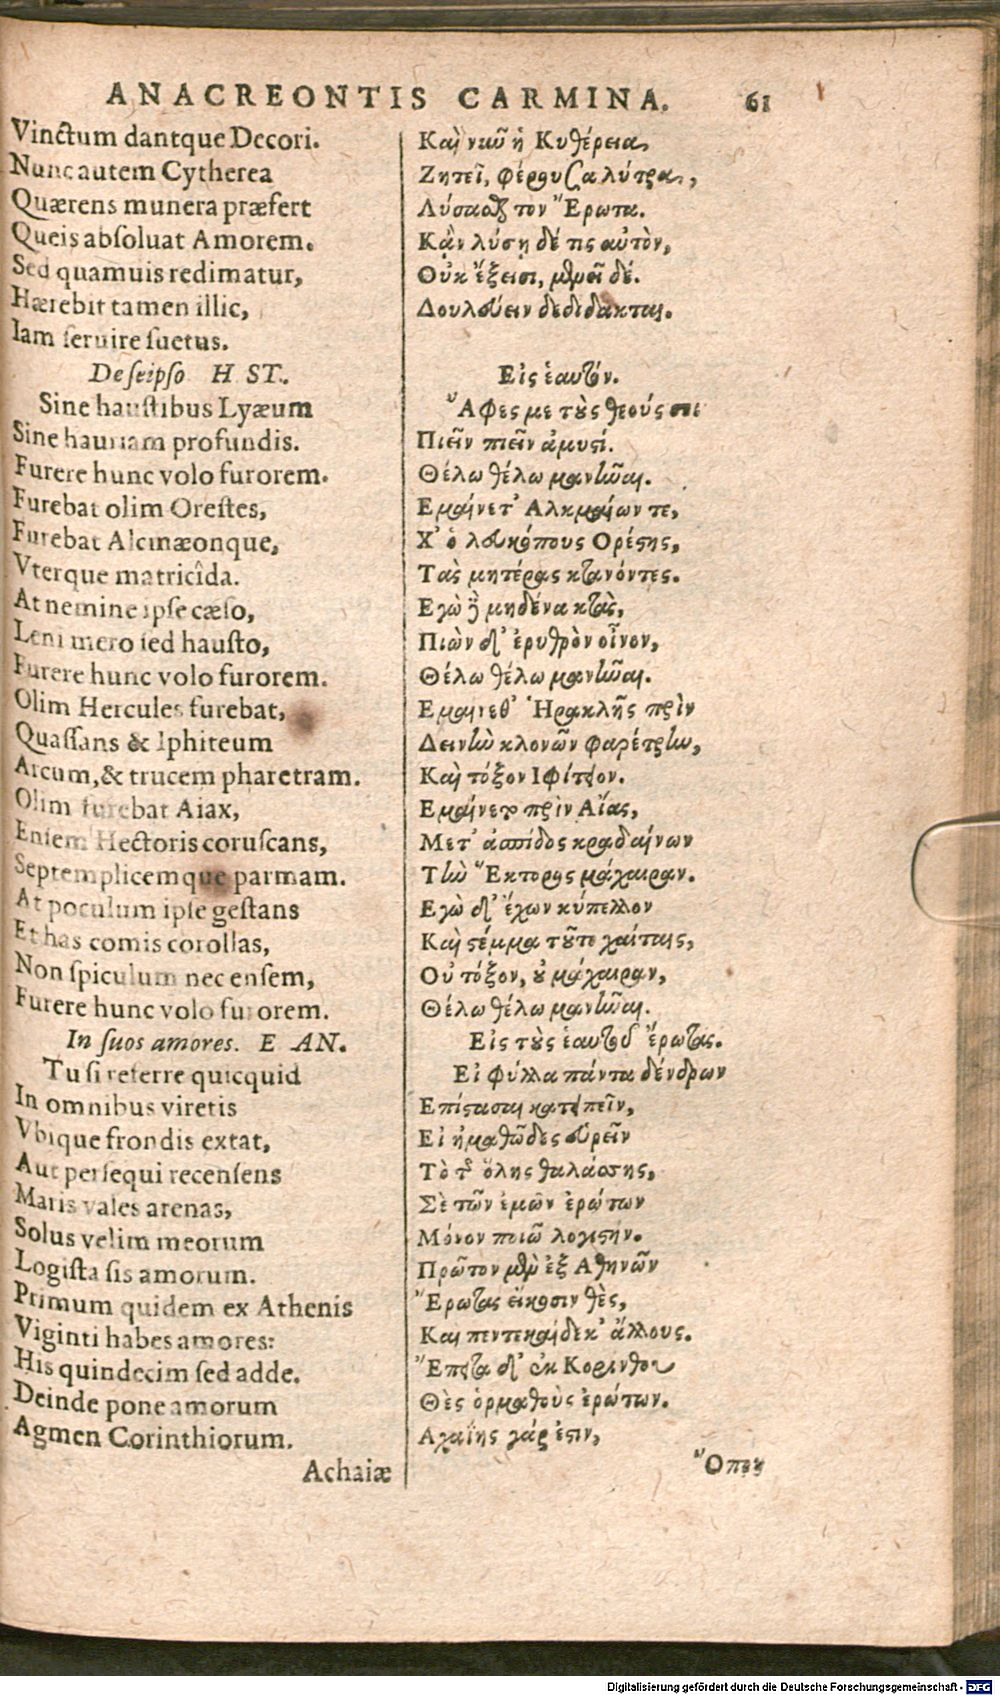 ANACREONTIS CARMINA. 61
Vinctum dantque Decori.
Nunc autem Cytherea
Quærens munera præfert
Queis abſoluat Amorem.
Sed quamuis redimatur,
Hærebit tamen illic,
Iam ſeruire ſuetus.
De ſeipſo H ST.
Sine hauſtibus Lyæum
Sine hauriam profundis.
Furere hunc volo furorem.
Furebat olim Oreſtes,
Furebat Alcmæonque,
Vterque matricîda.
At nemine ipſe cæſo,
Leni mero ſed hauſto,
Furere hunc volo furorem.
Olim Hercules furebat,
Quaſſans & Iphiteum
Arcum, & trucem pharetram.
Olim furebat Aiax,
Enſem Hectoris coruſcans,
Septemplicemque parmam.
At poculum ipſe geſtans
Et has comis corollas,
Non ſpiculum nec enſem,
Furere hunc volo furorem.
In ſuos amores. E AN.
Tu ſi referre quicquid
In omnibus viretis
Vbique frondis extat,
Aut perſequi recenſens
Maris vales arenas,
Solus velim meorum
Logiſta ſis amorum.
Primum quidem ex Athenis
Viginti habes amores:
His quindecim ſed adde.
Deinde pone amorum
Agmen Corinthiorum.
Achaiæ
Καὶ νῦν ἡ Κυθέρεια
Ζητεῖ, φέρουσα λύτρα,
Λύσασθαι τὸν Ἔρωτα.
Κἂν λύσῃ δέ τις αὐτὸν,
Οὐκ ἔξεισι, μενεῖ δέ.
Δουλεύειν δεδίδακται.
Εἰς ἑαυτόν.
Ἄφες με τοὺς θεούς σοι
Πιεῖν πιεῖν ἀμυστί.
Θέλω θέλω μανῆναι.
Εμαίνετ' Αλκμαίων τε,
Χ' ὁ λευκόπους Ορέστης,
Τὰς μητέρας κτανόντες.
Εγὼ δὲ μηδένα κτὰς,
Πιὼν δ' ἐρυθρὸν οἶνον,
Θέλω θέλω μανῆναι.
Εμαίνεθ' Ἡρακλῆς πρὶν
Δεινὴν κλονῶν φαρέτρην,
Καὶ τόξον Ιφίτειον.
Εμαίνετο πρὶν Αἴας,
Μετ' ἀσπίδος κραδαίνων
Τὴν Ἕκτορος μάχαιραν.
Εγὼ δ' ἔχων κύπελλον
Καὶ στέμμα τοῦτο χαίταις,
Οὐ τόξον, οὐ μάχαιραν,
Θέλω θέλω μανῆναι.
Εἰς τοὺς ἑαυτοῦ ἔρωτας.
Εἰ φύλλα πάντα δένδρων
Επίστασαι κατειπεῖν,
Εἰ ἠμαθῶδες εὑρεῖν
Τὸ τῆς ὅλης θαλάσσης,
Σὲ τῶν ἐμῶν ἐρώτων
Μόνον ποιῶ λογιστήν.
Πρῶτον μὲν ἐξ Αθηνῶν
Ἔρωτας εἴκοσιν θὲς,
Και πεντεκαίδεκ' ἄλλους.
Ἔπειτα δ' ἐκ Κορίνθου
Θὲς ὁρμαθοὺς ἐρώτων.
Αχαΐης γάρ ἐστιν,
Ὅπου
Digitalisierung gefördert durch die Deutsche Forschungsgemeinschaft - DFG